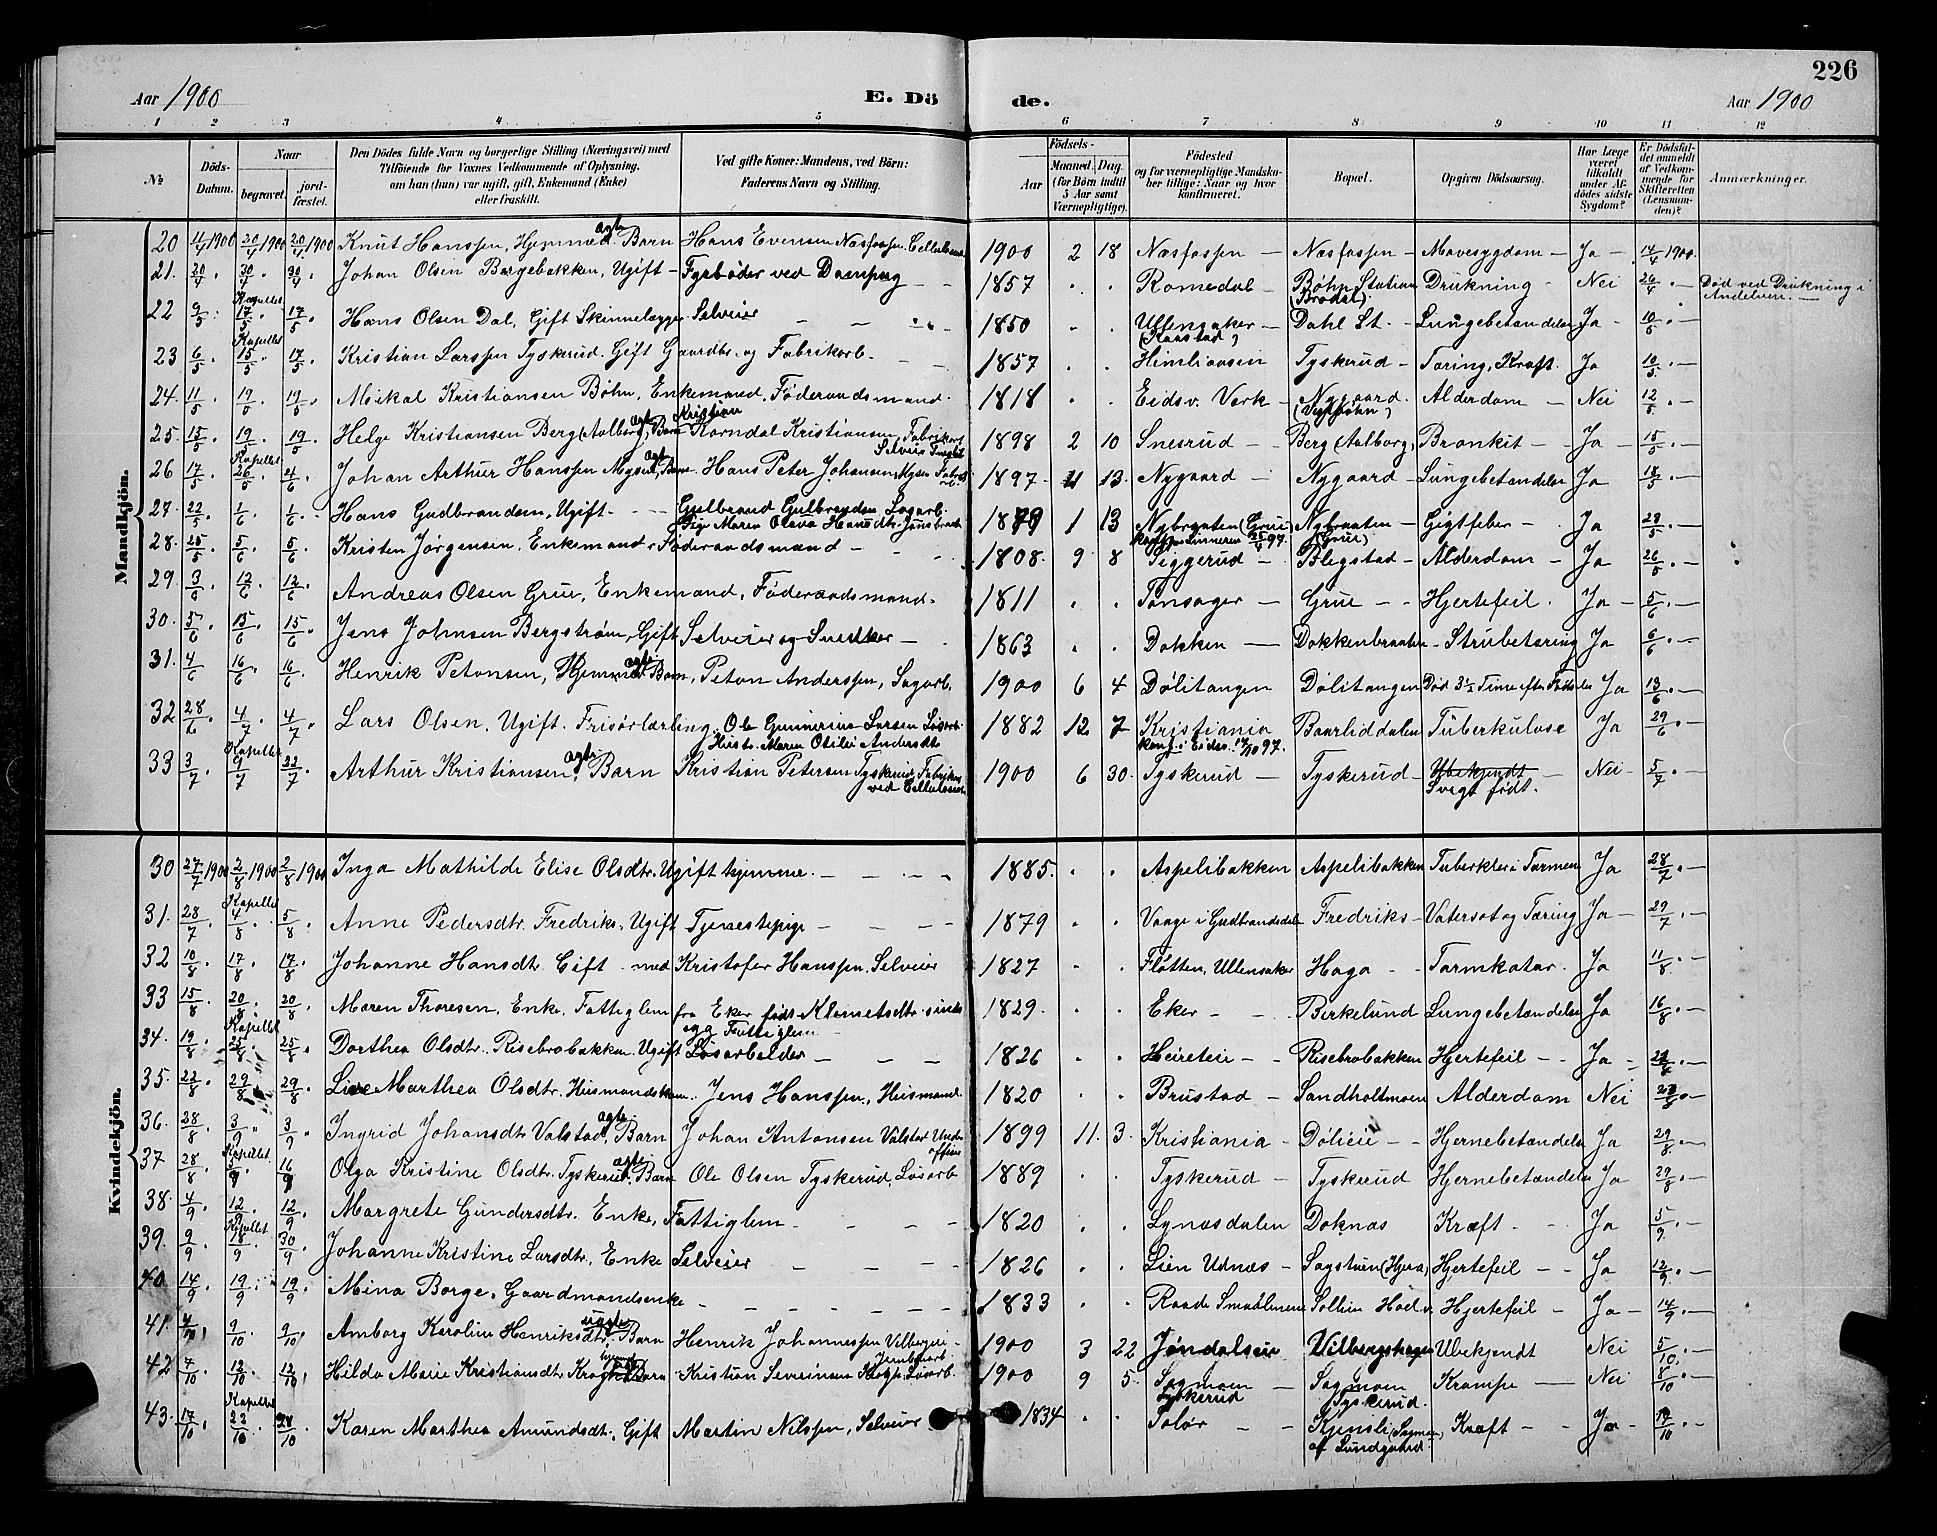 226
Aar 1900 E. Dö de. Aar 1900
1 2 3 4 5 6 7 8 9 10 11 12
№ Döds-Datum. Naar begravet. jord-fæstet. Den Dödes fulde Navn og borgerlige Stilling (Næringsvei) med Tilföiende for Voxnes Vedkommende af Oplysning, om han (hun) var ugift, gift, Enkemand (Enke) eller fraskilt. Ved gifte Koner: Mandens, ved Börn: Faderens Navn og Stilling. Aar Födsels- Maaned. Dag. (for Börn indtil 5 Aar samt Værnepligtige). Födested og for værnepligtige Mandskaber tillige: Naar og hvor konfirmeret. Bopæl. Opgiven Dödsaarsag. Har Læge været tilkaldt under Afdödes sidste Sygdom? Er Dödsfaldet anmeldt af Vedkommende for Skifteretten (Lensmanden)? Anmærkninger.
Mandkjön.
20 11/4 1900 20/4 1900 20/4 1900 Knut Hanssen, Hjemmed. ægte Barn Hans Evensen Næsfossen 1900 2 18 Næsfossen — Næsfossen — Mavesygdom — Ja — 14/4 1900
21. 20/4 30/4 30/4 Johan Olsen Børgebakken, Ugift — Fyrbøder ved Dampsag — — 1857 Romedal — Bøhn Station (Brodal) Drukning — Nei 26/4 — Død ved Drukning i Andelven. —
22 9/5 Kapellet 17/5 17/5 Hans Olsen Dal, Gift Skinnelægger. Selveier — — 1850 Ullensaker — (Kaastad) Dahl St. — Lungebetændelse Ja — 10/5 —
23 6/5 Kapellet 15/5 17/5 Kristian Larssen Tyskerud. Gift Gaardbr. og Fabrikarb. — 1857 Himliaasen Tyskerud — Tæring, Kræft. Ja 10/5 —
24. 11/5 19/5 19/5 Mikal Kristiansen Bøhn, Enkemand, Føderaadsmand. 1818 Eidsv. Værk — Nygaard. Alderdom — Nei 12/5 —
25. 15/5 19/5 19/5 Helge Kristiansen Berg (Aalborg) ægte Barn Kristian Korndal Kristiansen, Fabrikarb. Selveier 1898 2 10 Snesrud — Berg (Aalborg) Bronkit — Ja — 15/5 —
26 17/5 Kapellet 26/5 4/6 Johan Arthur Hanssen Mysen, ægte Barn. Hans Peter Johansen Mysen 1897 11 13. Nygaard — Nygaard — Lungebetændelse Ja 18/5 —
27. 22/5 1/6 1/6 Hans Gudbrandsen, Ugift. — — Gulbrand Gulbrandsen Sagarb. 1879 1 13 Nybraaten (Grue) Nybraaten (Grue) — Gigtfeber — Ja 29/5 —
28. 25/5 5/6 5/6 Kristen Jørgensen, Enkemand. Føderaadsmand — — 1808. 9 8 Tiggerud — Blegstad — Alderdom — Ja 26/5 —
29. 3/6 12/6 12/6 Andreas Olsen Grue, Enkemand, Føderaadsmand. 1811 Tønsager — Grue — — Hjertefeil. Ja — 5/6 —
30. 5/6 15/6 15/6 Jens Johnsen Bergstrøm, Gift Selveier og Snedker — 1863 Dokken — Dokkenbraaten — Strubetæring Ja 6/6 —
31. 4/6 16/6 16/6 Henrik Petersen, Hjemmed. ægte Barn, Peter Anderssen, Sagarb. 1900 6 4 Dølitangen Dølitangen Død 3½ Time efter Fødslen Ja 13/6 —
32 28/6 4/7 4/7 Lars Olsen, Ugift. Frisørlærling. Ole Gunnerius Larsen Løsarb. Hustr. Maren Otilie Andersdtr. 1882 12 7 Kristiania konf. i Eidsv. 17/10 97. Baarliddalen Tuberkulose Ja 29/6 —
33 3/7 Kapellet 9/7 22/7 Arthur Kristiansen, ægte Barn Kristian Petersen Tyskerud, Fabrikarb. ved Cellulosen 1900 6 30. Tyskerud — Tyskerud — Ubekjendt — Svagt født. Nei — 5/7 —
Kvindekjön.
30 27/7 1900 2/8 1900 2/8 1900 Inga Mathilde Elise Olsdtr. Ugift hjemme. — — — 1885. Aspelibakken Aspelibakken Tuberkler i Tarmen Ja 28/7 —
31. 28/7 Kapellet 4/8 5/8 Anne Pedersdtr. Fredriks, Ugift Tjenestepige — — — 1879 Vaage i Gudbrandsdalen Fredriks — Vatersot og Tæring Ja — 29/7 —
32 10/8 17/8 17/8 Johanne Hansdtr. Gift med Kristofer Hanssen, Selveier 1827 Fløtten, Ullensaker Haga — — Tarmkatar. Ja 11/8 —
33 15/8 20/8 20/8 Maren Thoresen, Enke, Fattiglem fra Eker født Klemetsdtr. 1829. Eker — — Birkelund Lungebetændelse Ja 16/8 —
34. 19/8 Kapellet 25/8 25/8 Dorthea Olsdtr. Risebrobakken. Ugift Løsarbeider og Fattiglem — — 1826 Heireteie — — Risebrobakken Hjertefeil — — Ja —
35. 22/8 29/8 29/8 Lise Marthea Olsdtr. Husmandskone. Jens Hanssen, Husmand. 1820 Brustad — Sandholtmoen Alderdom Nei 23/8 —
36. 28/8 3/9 3/9 Ingrid Johansdtr. Valstad, ægte Barn Johan Antonsen Valstad Underofficer 1899 11. 3. Kristiania — Dølieie — — Hjernebetændelse Ja 29/8 —
37 28/8 Kapellet 16/9 Olga Kristine Olsdtr. Tyskerud. ægte Barn Ole Olsen Tyskerud, Løsarb 1889 Tyskerud — Tyskerud Hjernebetændelse Ja 29/8 —
38. 4/9 12/9 12/9 Margrete Gundersdtr. Enke, Fattiglem — — — 1820 Lynæsdalen Doknæs Kræft. — Ja 5/9 —
39. 9/9 Kapellet 18/9 30/9 Johanne Kristine Larsdtr. Enke Selveier — — — 1826 Lien Udnæs — Sagstuen (Hjera) Hjertefeil — — Ja 12/9 —
40 14/9 19/9 19/9 Mina Borge, Gaardmandsenke — — — 1833 Raade Smaalenene Sollien Hjertefeil — Ja — 14/9 —
41. 4/10 9/10 9/10 Amborg Karoline Henriksdtr. uægte Barn Henrik Johannessen Vilbergeie — 1900 3 22 Jøndalseie Vilbergshagen Ubekjendt Nei 5/10
42 7/10 12/10 12/10 Hilda Marie Kristiansdtr. Krogh Barn Kristian Severinsen Krogh. Løsarb. 1900 9 5. Sagmoen Tyskerud — Sagmoen Tyskerud. Krampe — Nei 8/10 —
43. 17/10 Kapellet 22/10 28/10 Karen Marthea Amundsdtr. Gift Martin Nilssen, Selveier 1834 Solør — — Kjensli (Sagmoen) af Lundgaard. Kræft — — Ja — 19/10 —